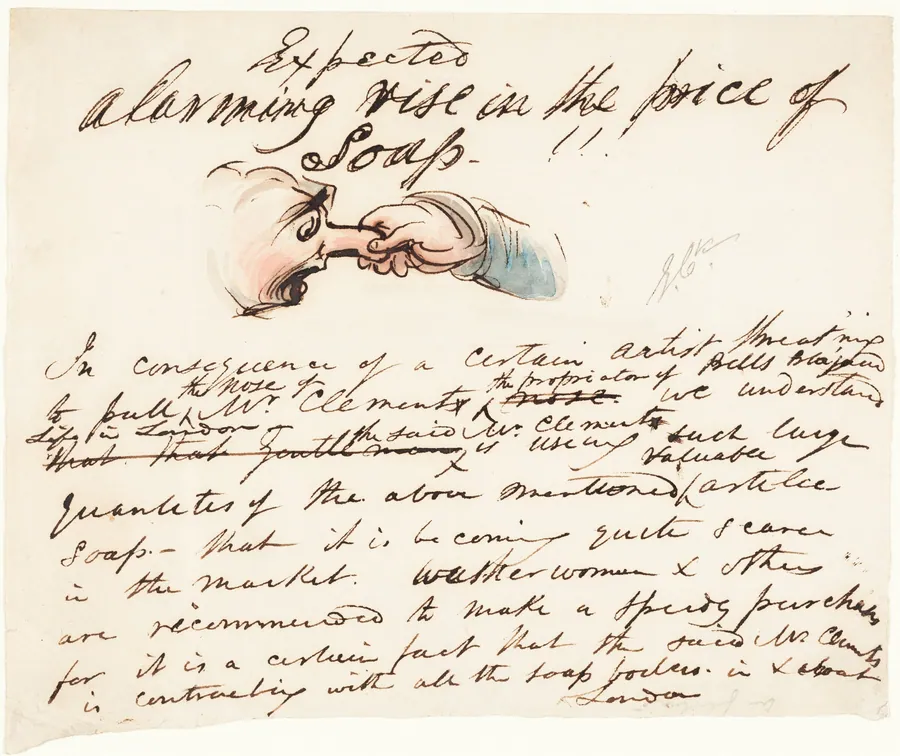 Expected
alarming rise in the price of
Soap. !!
G.Ck.
In consequence of a certain artist threat'ning
to pull the Nose of Mr Clement the proprietor of Bells Life in London nose. we understand
that that gentleman the said Mr Clement is using such large
quantities of the above mentioned valuable article
Soap. - that it is becoming quite scarce
in the market. washerwomen & others
are recommended to make a speedy purchase
for it is a certain fact that the said Mr Clement
is contracting with all the soap boilers. in & about
London